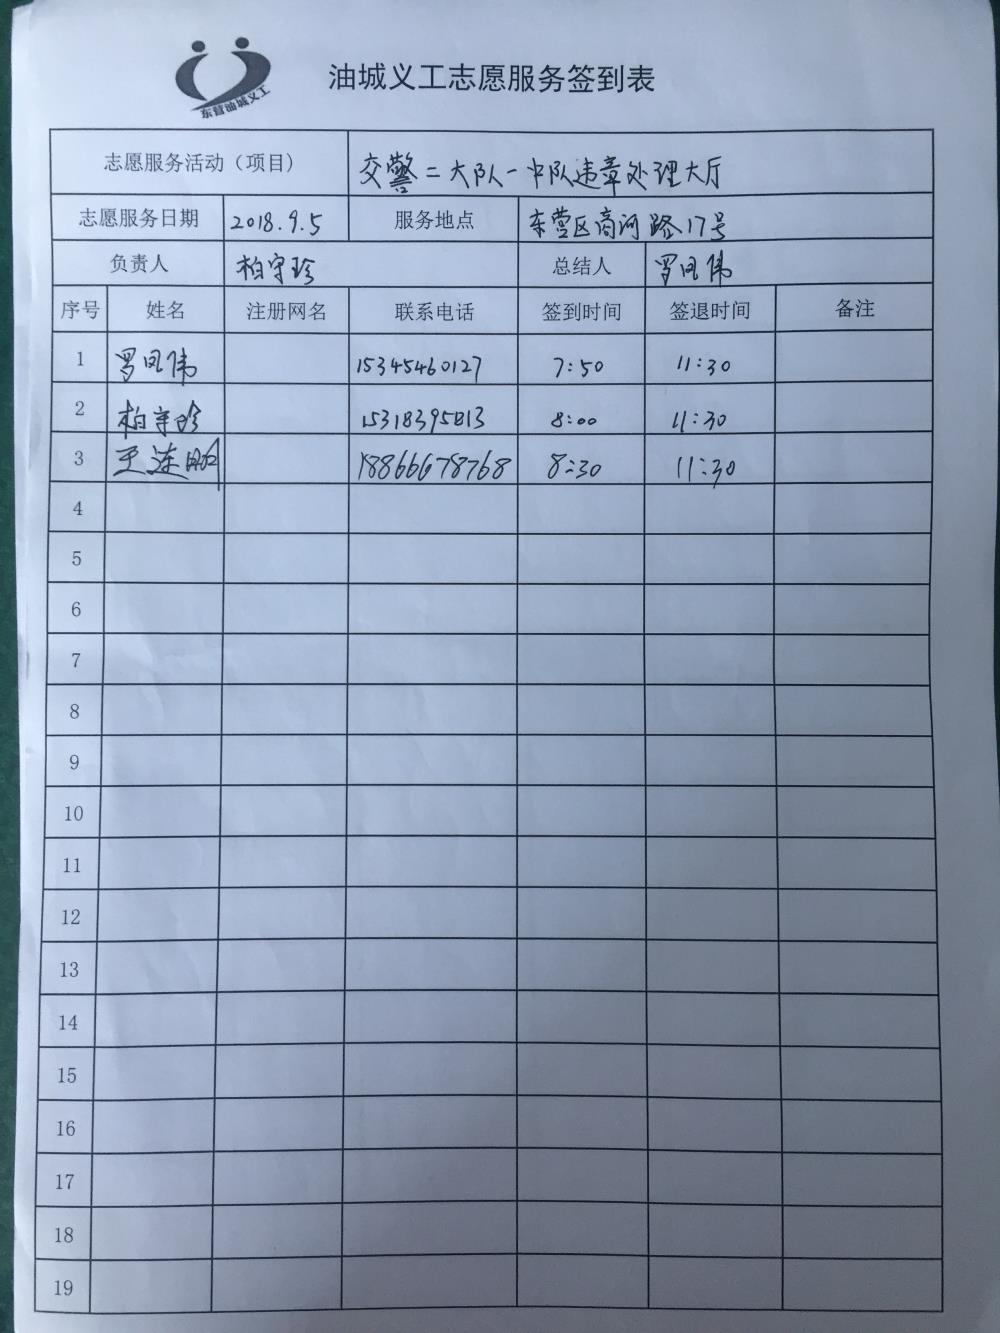 东营油城义工
油城义工志愿服务签到表
志愿服务活动（项目） 交警二大队一中队违章处理大厅
志愿服务日期 2018.9.5 服务地点 东营区商河路17号
负责人 柏守珍 总结人 罗凤伟
序号 姓名 注册网名 联系电话 签到时间 签退时间 备注
1 罗凤伟 15345460127 7:50 11:30
2 柏守珍 15318395813 8:00 11:30
3 王连 18866678768 8:30 11:30
4
5
6
7
8
9
10
11
12
13
14
15
16
17
18
19